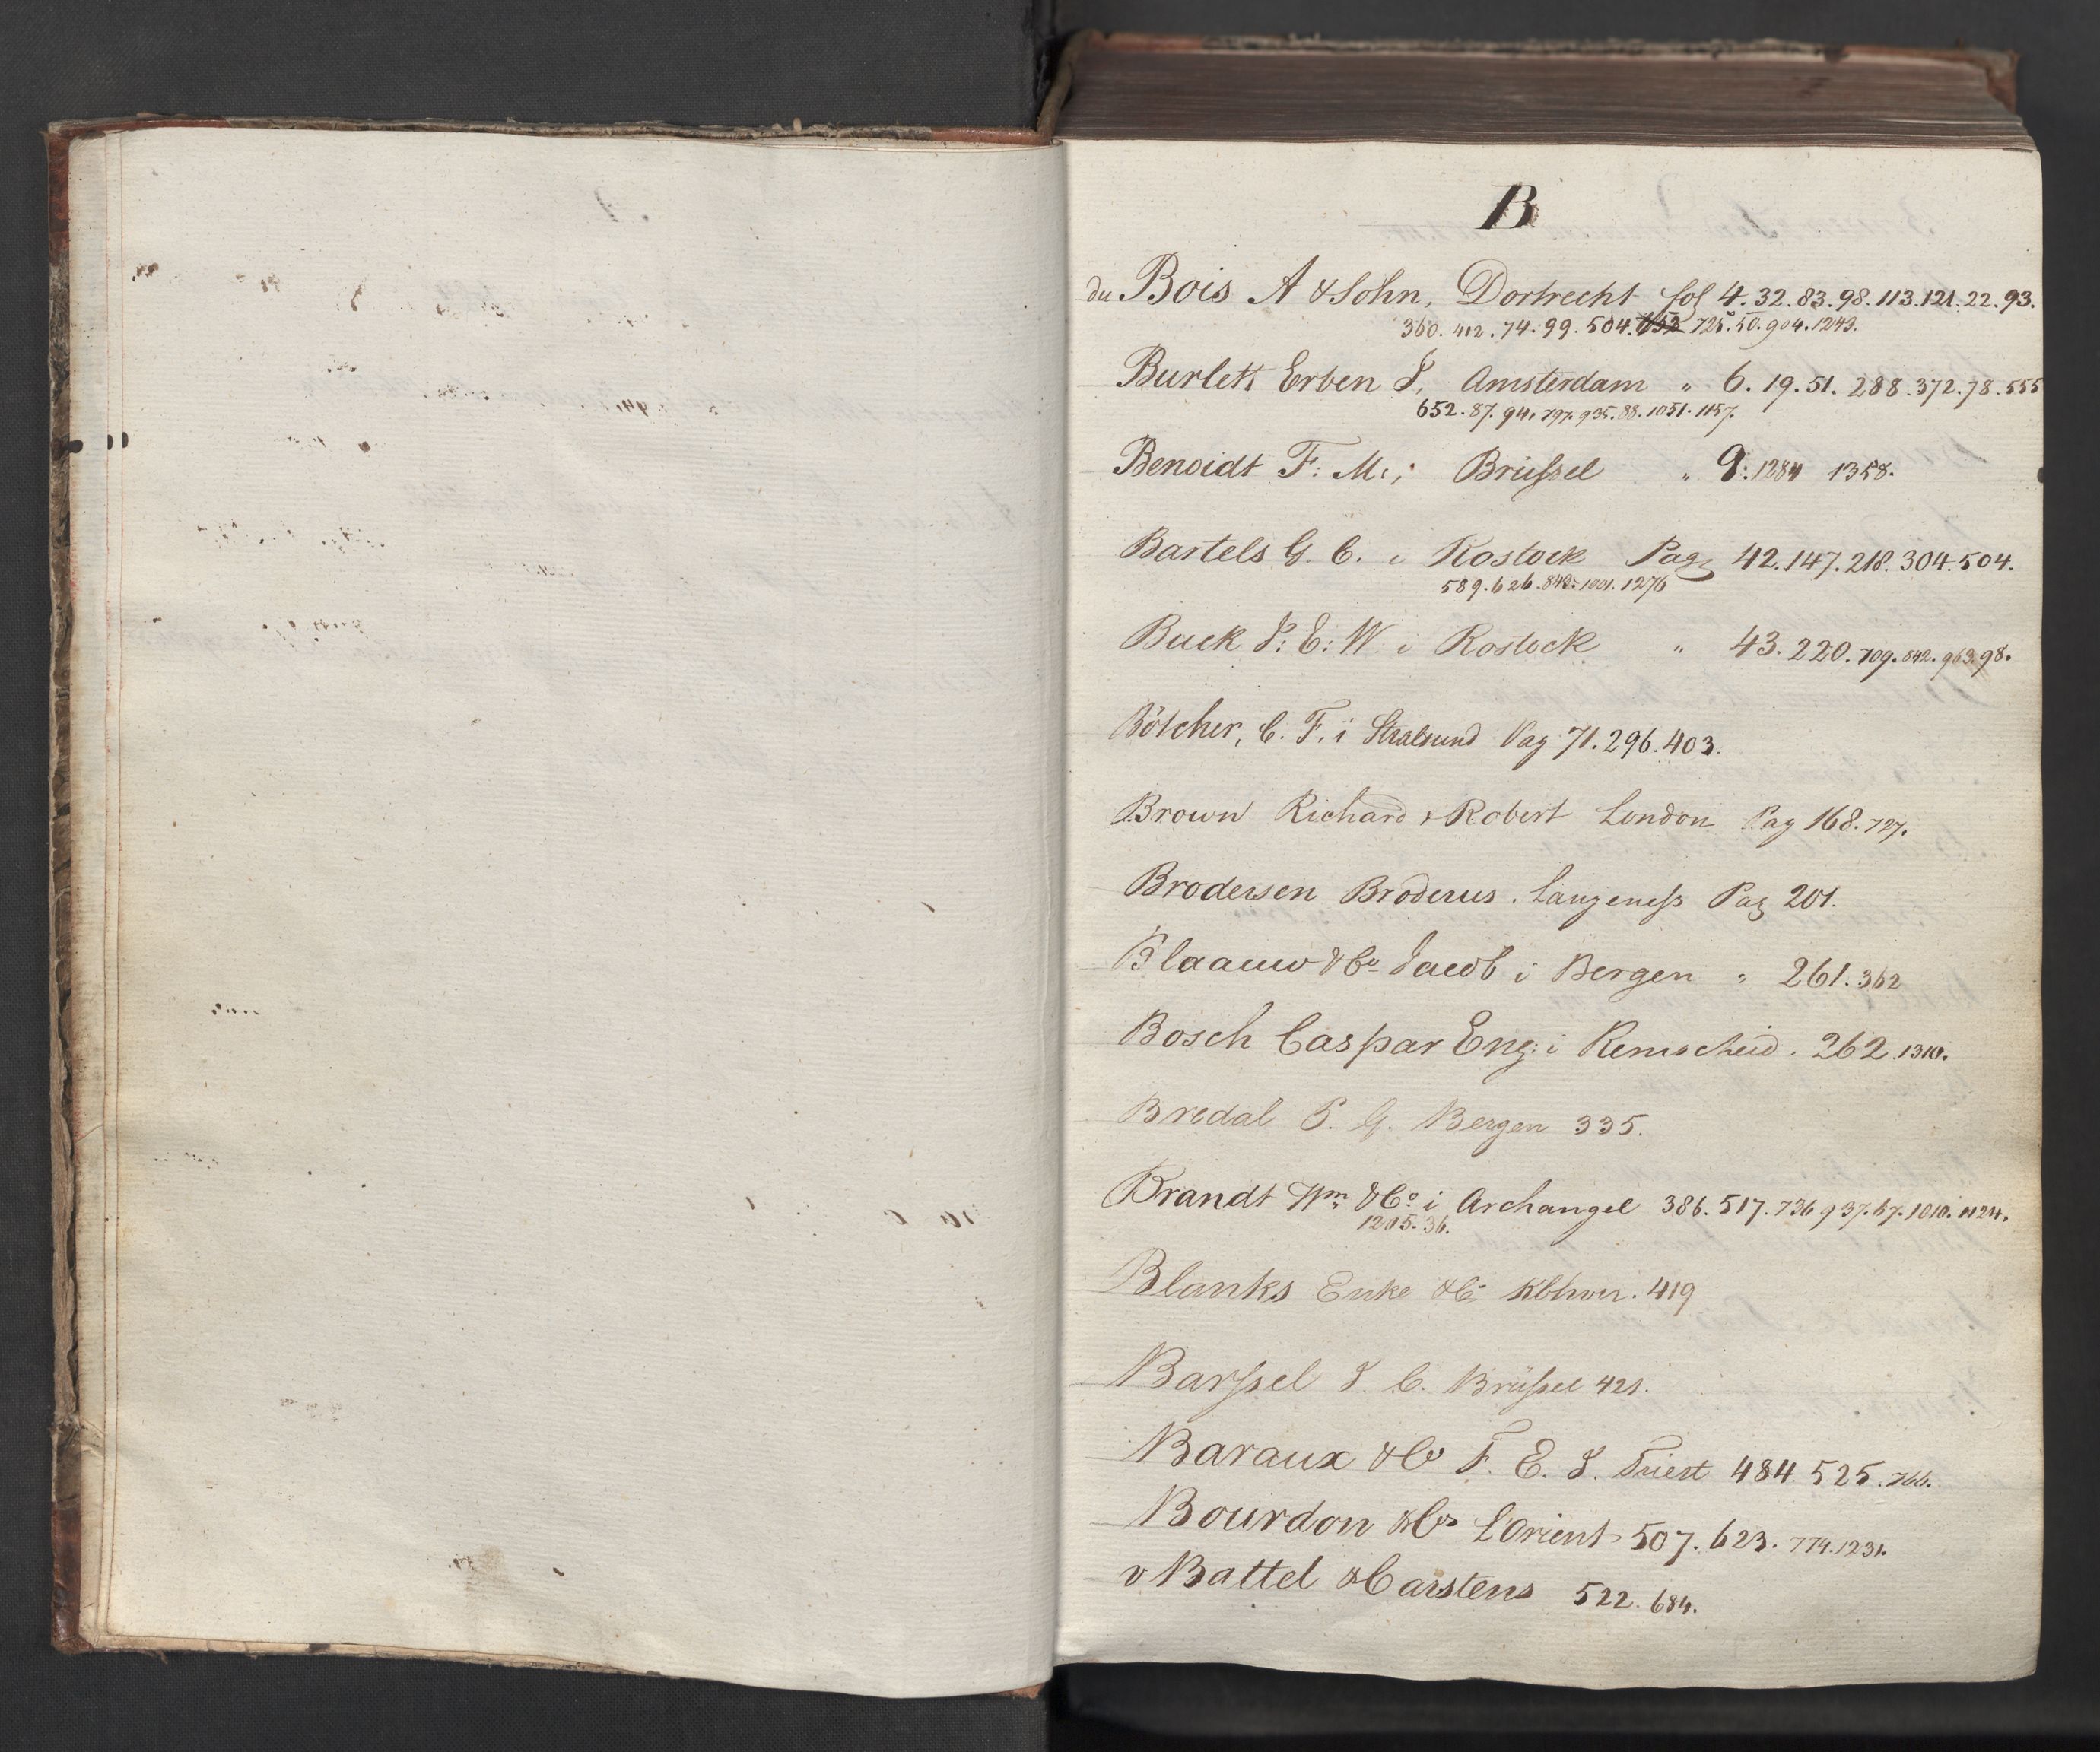 B
du Bois A & Sohn, Dortrecht fol 4. 32. 83. 98. 113. 121. 22. 93.
360. 412. 74. 99. 504. 652 725. 50. 904. 1243.
Burlett Erben J. Amsterdam " 6. 19. 51. 288. 372. 78. 555
652. 87. 94. 797. 935. 88. 1051. 1157.
Benoidt F: M:; Brüssel " 9. 1284 1358.
Bartels G. C. i Rostock Pag 42. 147. 218. 304. 504.
589. 626. 843. 1001. 1276
Buck J: E: W. i Rostock " 43. 220. 709. 842. 963. 98.
Bötcher, C. F. i Stralsund Pag 71. 296. 403.
Brown Richard & Robert London Pag 168. 727.
Brodersen Broderus. Langeness Pag 201.
Blaauw & Co Jacob i Bergen " 261. 362
Bosch Caspar Eng: i Remscheid. 262. 1310.
Bredal P. G. Bergen 335.
Brandt Wm & Co i Archangel 386. 517. 736. 937. 67. 1010. 1124.
1205. 36.
Blanks Enke & C 419
Barssel J. C. Brüssel 421.
Baraux & Co F. E. J. Triest 484. 525. 766.
Bourdon & Co L'Orient 507. 623. 774. 1231.
v Battel & Carstens 522. 684.